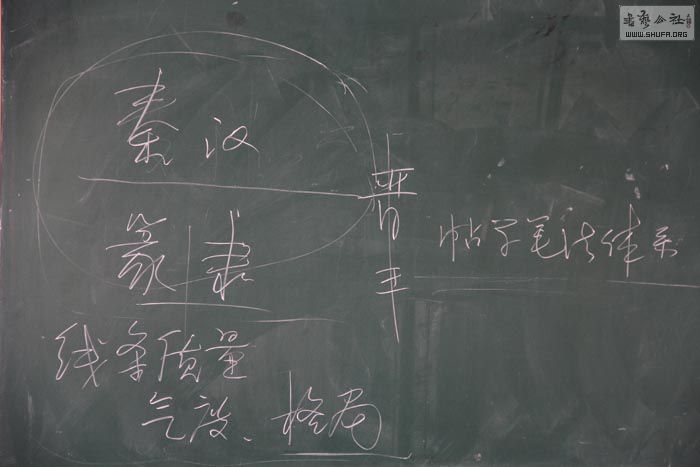 書法公社
WWW.SHUFA.ORG
秦汉
晋
篆隶
王
帖学笔法体系
线条质量
气度、格局